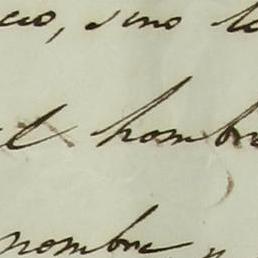 cio, sino lo
el hombre
nombre y